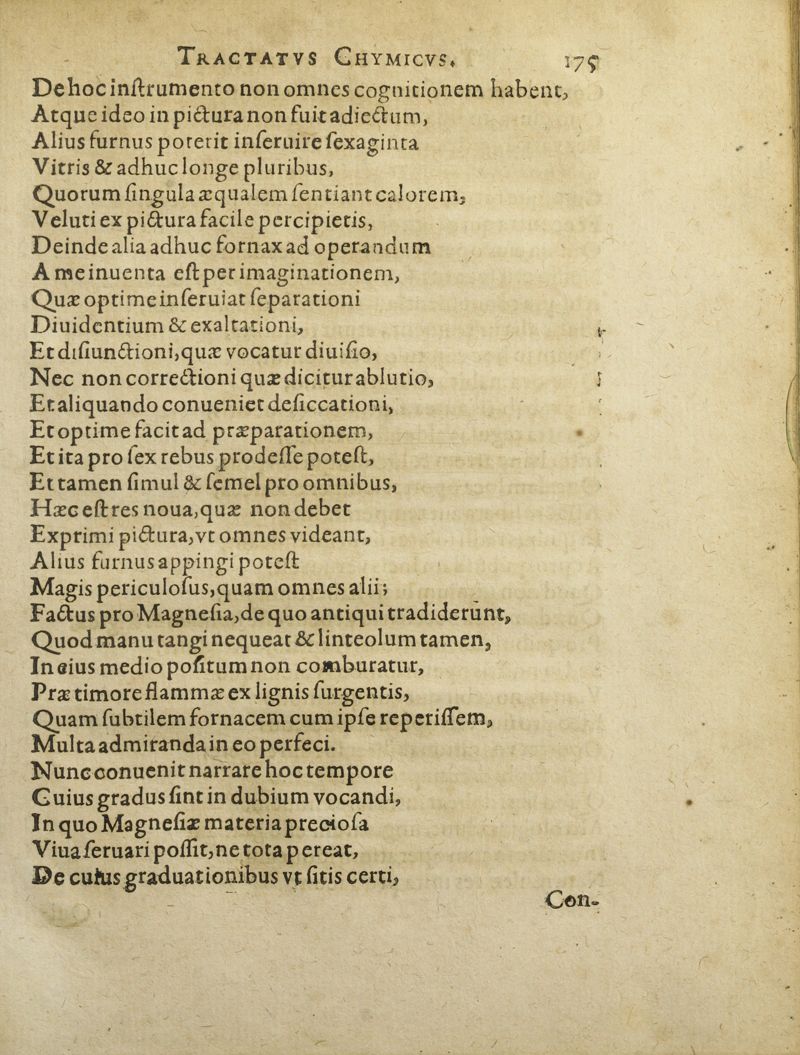 TRACTATVS CHYMICVS. 175
De hoc inſtrumento non omnes cognitionem habent,
Atque ideo in pictura non fuit adiectum,
Alius furnus poterit inſeruire ſexaginta
Vitris & adhuc longe pluribus,
Quorum ſingula æqualem ſentiant calorem,
Veluti ex pictura facile percipietis,
Deinde alia adhuc fornax ad operandum
A me inuenta eſt per imaginationem,
Quæ optime inſeruiat ſeparationi
Diuidentium & exaltationi,
Et diſiunctioni, quæ vocatur diuiſio,
Nec non correctioni quæ dicitur ablutio,
Et aliquando conueniet deſiccationi,
Et optime facit ad præparationem,
Et ita pro ſex rebus prodeſſe poteſt,
Et tamen ſimul & ſemel pro omnibus,
Hæc eſt res noua, quæ non debet
Exprimi pictura, vt omnes videant,
Alius furnus appingi poteſt
Magis periculoſus, quam omnes alii;
Factus pro Magneſia, de quo antiqui tradiderunt,
Quod manu tangi nequeat & linteolum tamen,
In eius medio poſitum non comburatur,
Præ timore flammæ ex lignis ſurgentis,
Quam ſubtilem fornacem cum ipſe reperiſſem,
Multa admiranda in eo perfeci.
Nunc conuenit narrare hoc tempore
Cuius gradus ſint in dubium vocandi,
In quo Magneſiæ materia precioſa
Viua ſeruari poſſit, ne tota pereat,
De cuius graduationibus vt ſitis certi,
Con-